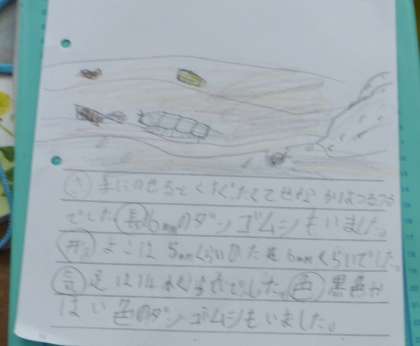 ㋚手にのせるとくすぐたくてせなかはつるつる
でした㊗6mmのダンゴムシもいました。
㋕よこは5mmくらいのたて6mmくらいでした
足は14本くらいでした。㊀黒色か
はい色のダンゴムシもいました。